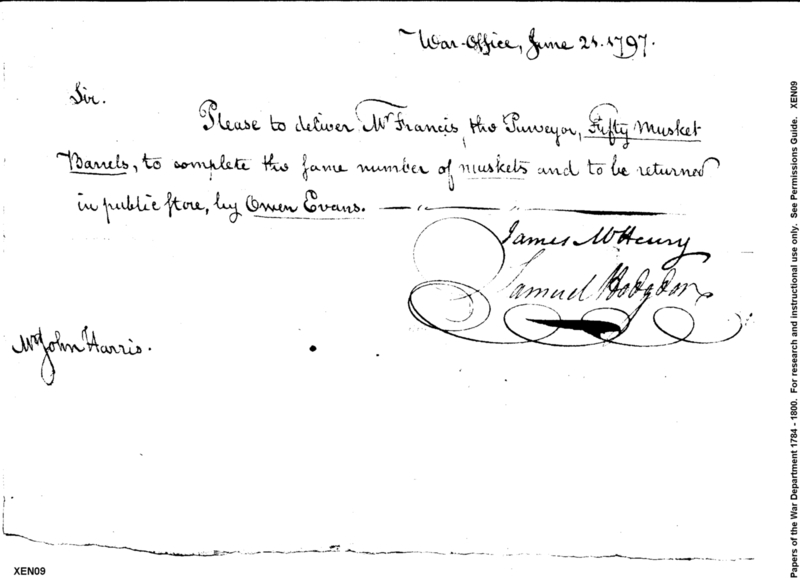 War-Office, June 21. 1797.
Sir.
Please to deliver Mr Francis, the Purveyor, Fifty Musket
Barrels, to complete the same number of muskets and to be returned
in public store, by Owen Evans.
James McHenry
Samuel Hodgdon
Mr John Harris.
XEN09
Papers of the War Department 1784 - 1800. For research and instructional use only. See Permissions Guide. XEN09